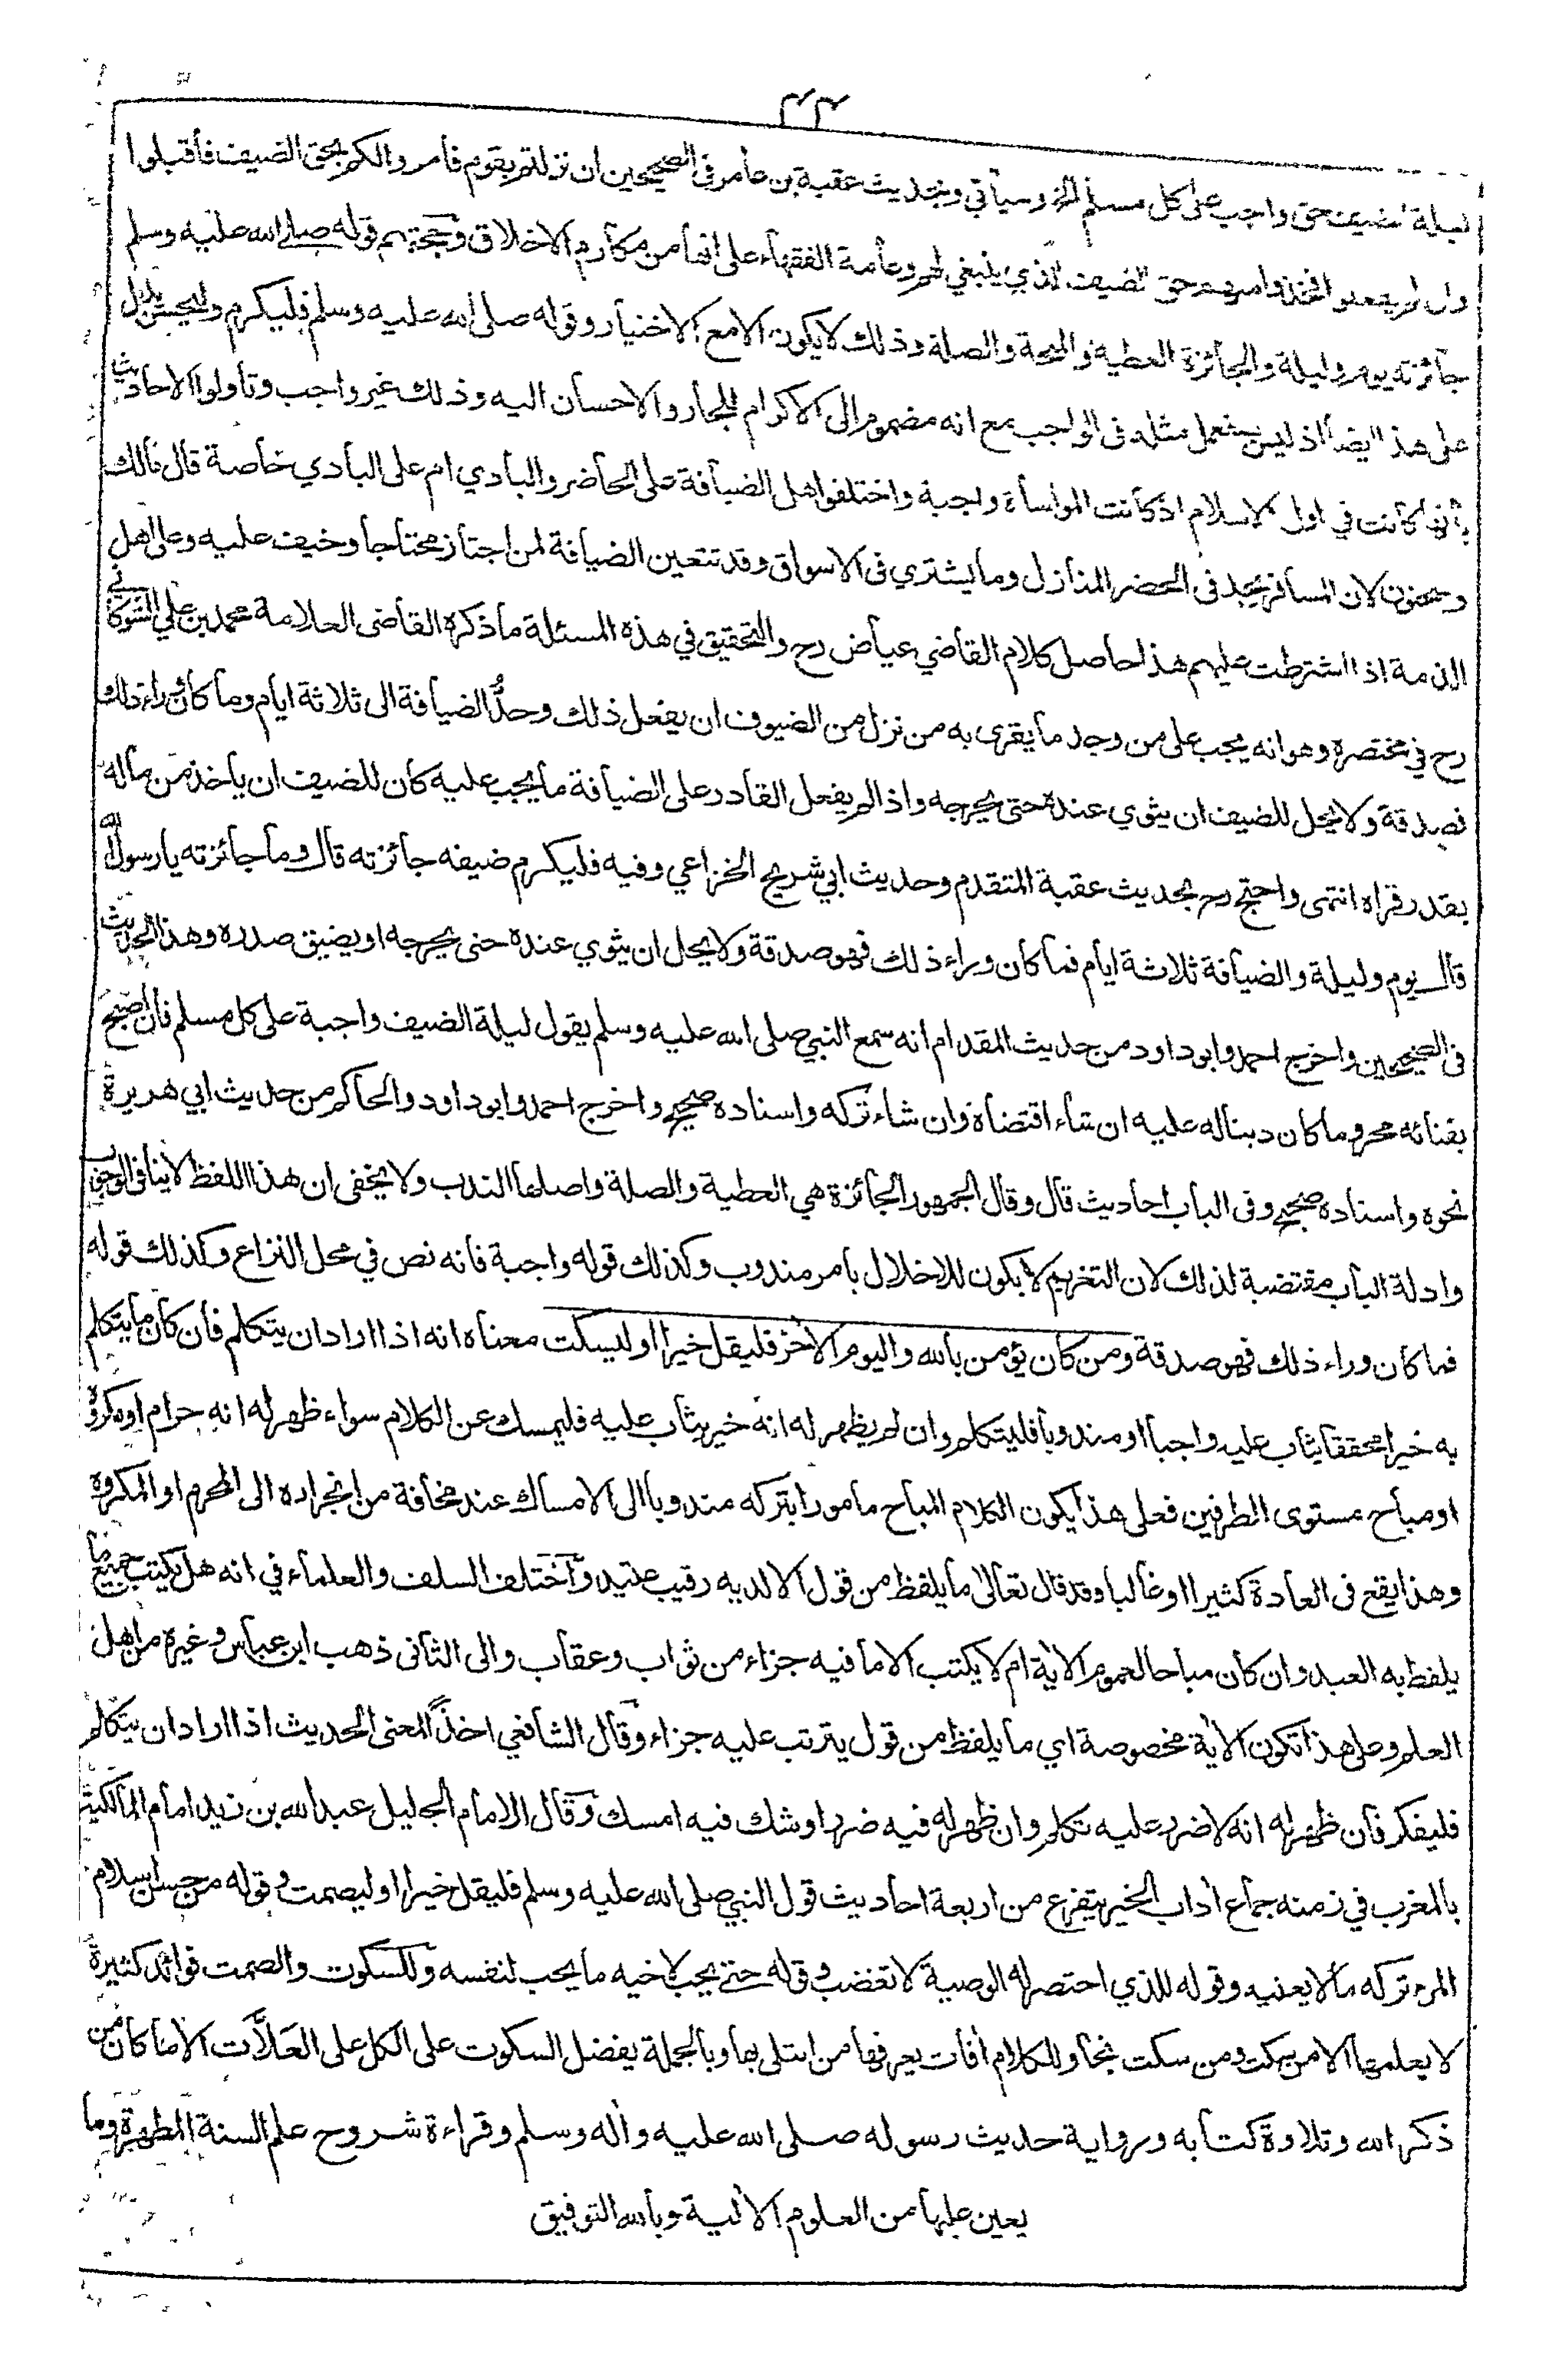 ٢٣
ليلة الضيف حق واجب على كل مسلم الخ وسيأتي وبحديث عقبة بن عامر في الصحيحين ان نزلتم بقوم فأمروا لكم بحق الضيف فأقبلوا
وان لم يفعلوا فخذوا منهم حق الضيف الذي ينبغي لهم وعامة الفقهاء على انها من مكارم الاخلاق وحجتهم قوله صلى الله عليه وسلم
جائزته يوم وليلة والجائزة العطية والمنحة والصلة وذلك لا يكون الا مع الاختيار وقوله صلى الله عليه وسلم فليكرم وليحسن يدل
على هذا ايضا اذ ليس يستعمل مثله في الواجب مع انه مضموم الى الاكرام للجار والاحسان اليه وذلك غير واجب وتأولوا الاحاديث
بأنها كانت في اول الاسلام اذ كانت المواساة واجبة واختلفوا هل الضيافة على الحاضر والبادي ام على البادي خاصة قال مالك
وسحنون لان المسافر يجد في الحضر المنازل وما يشتري في الاسواق وقد تتعين الضيافة لمن اجتاز محتاجا وخيف عليه وعلى اهل
الذمة اذا اشترطت عليهم هذا حاصل كلام القاضي عياض رح والتحقيق في هذه المسئلة ما ذكره القاضي العلامة محمد بن علي الشوكاني
رح في مختصره وهو انه يجب على من وجد ما يقرى به من نزل من الضيوف ان يفعل ذلك وحد الضيافة الى ثلاثة ايام وما كان وراء ذلك
فصدقة ولا يحل للضيف ان يثوي عنده حتى يحرجه واذا لم يفعل القادر على الضيافة ما يجب عليه كان للضيف ان يأخذ من ماله
بقدر قراه انتهى واحتج رح بحديث عقبة المتقدم وحديث ابي شريح الخزاعي وفيه فليكرم ضيفه جائزته قال وما جائزته يا رسول الله
قال يوم وليلة والضيافة ثلاثة ايام فما كان وراء ذلك فهو صدقة ولا يحل ان يثوي عنده حتى يحرجه او يضيق صدره وهذا الحديث
في الصحيحين واخرج احمد وابو داود من حديث المقدام انه سمع النبي صلى الله عليه وسلم يقول ليلة الضيف واجبة على كل مسلم فان اصبح
بفنائه محروما كان دينا له عليه ان شاء اقتضاه وان شاء تركه واسناده صحيح واخرج احمد وابو داود والحاكم من حديث ابي هريرة
نحوه واسناده صحيح وفي الباب احاديث قال وقال الجمهور الجائزة هي العطية والصلة واصلها الندب ولا يخفى ان هذا اللفظ لا ينافي الوجوب
وادلة الباب مقتضية لذلك لان التغريم لا يكون للاخلال بأمر مندوب وكذلك قوله واجبة فانه نص في محل النزاع وكذلك قوله
فما كان وراء ذلك فهو صدقة ومن كان يؤمن بالله واليوم الآخر فليقل خيرا او ليسكت معناه انه اذا اراد ان يتكلم فان كان ما يتكلم
به خيرا محققا يثاب عليه واجبا او مندوبا فليتكلم وان لم يظهر له انه خير يثاب عليه فليمسك عن الكلام سواء ظهر له انه حرام او مكروه
او مباح مستوى الطرفين فعلى هذا يكون الكلام المباح مأمورا بتركه مندوبا الى الامساك عند مخافة من انجراره الى المحرم او المكروه
وهذا يقع في العادة كثيرا او غالبا وقد قال تعالى ما يلفظ من قول الا لديه رقيب عتيد واختلف السلف والعلماء في انه هل يكتب جميع ما
يلفظ به العبد وان كان مباحا لعموم الآية ام لا يكتب الا ما فيه جزاء من ثواب وعقاب والى الثاني ذهب ابن عباس وغيره من اهل
العلم وعلى هذا تكون الآية مخصوصة اي ما يلفظ من قول يترتب عليه جزاء وقال الشافعي اخذا لمعنى الحديث اذا اراد ان يتكلم
فليفكر فان ظهر له انه لا ضرر عليه تكلم وان ظهر له فيه ضرر او شك فيه امسك وقال الامام الجليل عبد الله بن زيد امام المالكية
بالمغرب في زمنه جماع آداب الخير يتفرع من اربعة احاديث قول النبي صلى الله عليه وسلم فليقل خيرا او ليصمت وقوله من حسن اسلام
المرء تركه ما لا يعنيه وقوله للذي اختصر له الوصية لا تغضب وقوله حتى يحب لاخيه ما يحب لنفسه وللسكوت والصمت فوائد كثيرة
لا يعلمها الا من سكت ومن سكت نجا وللكلام آفات يعرفها من ابتلى بها وبالجملة يفضل السكوت على الكل على العلات الا ما كان من
ذكر الله وتلاوة كتابه ورواية حديث رسوله صلى الله عليه وآله وسلم وقراءة شروح علم السنة المطهرة وما
يعين عليها من العلوم الآلية وبالله التوفيق